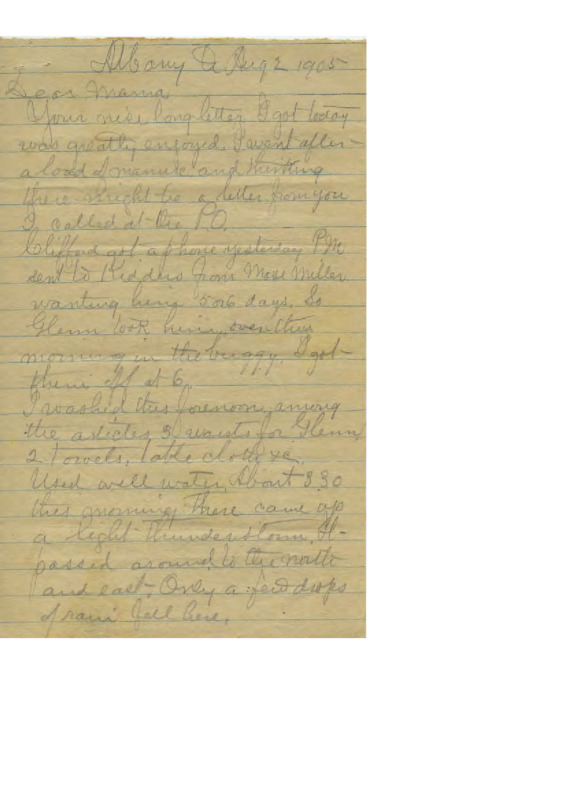 Albany Ia Aug 2 1905
Dear Mama
Your nice long letter I got today
was greatly enjoyed. I went after
a load of manure and thinking
there might be a letter from you
I called at the P.O.
Clifford got a phone yesterday PM
sent to Kidders from Mose Miller
wanting him 5 or 6 days. So
Glenn took him over this
morning in the buggy. I got
them off at 6.
I washed this forenoon, among
the articles, 3 waists for Glenn,
2 towels, table cloth, &c.
Used well water. About 8.30
this morning there came up
a light thunderstorm. It
passed around to the north
and east. Only a few drops
of rain fell here.